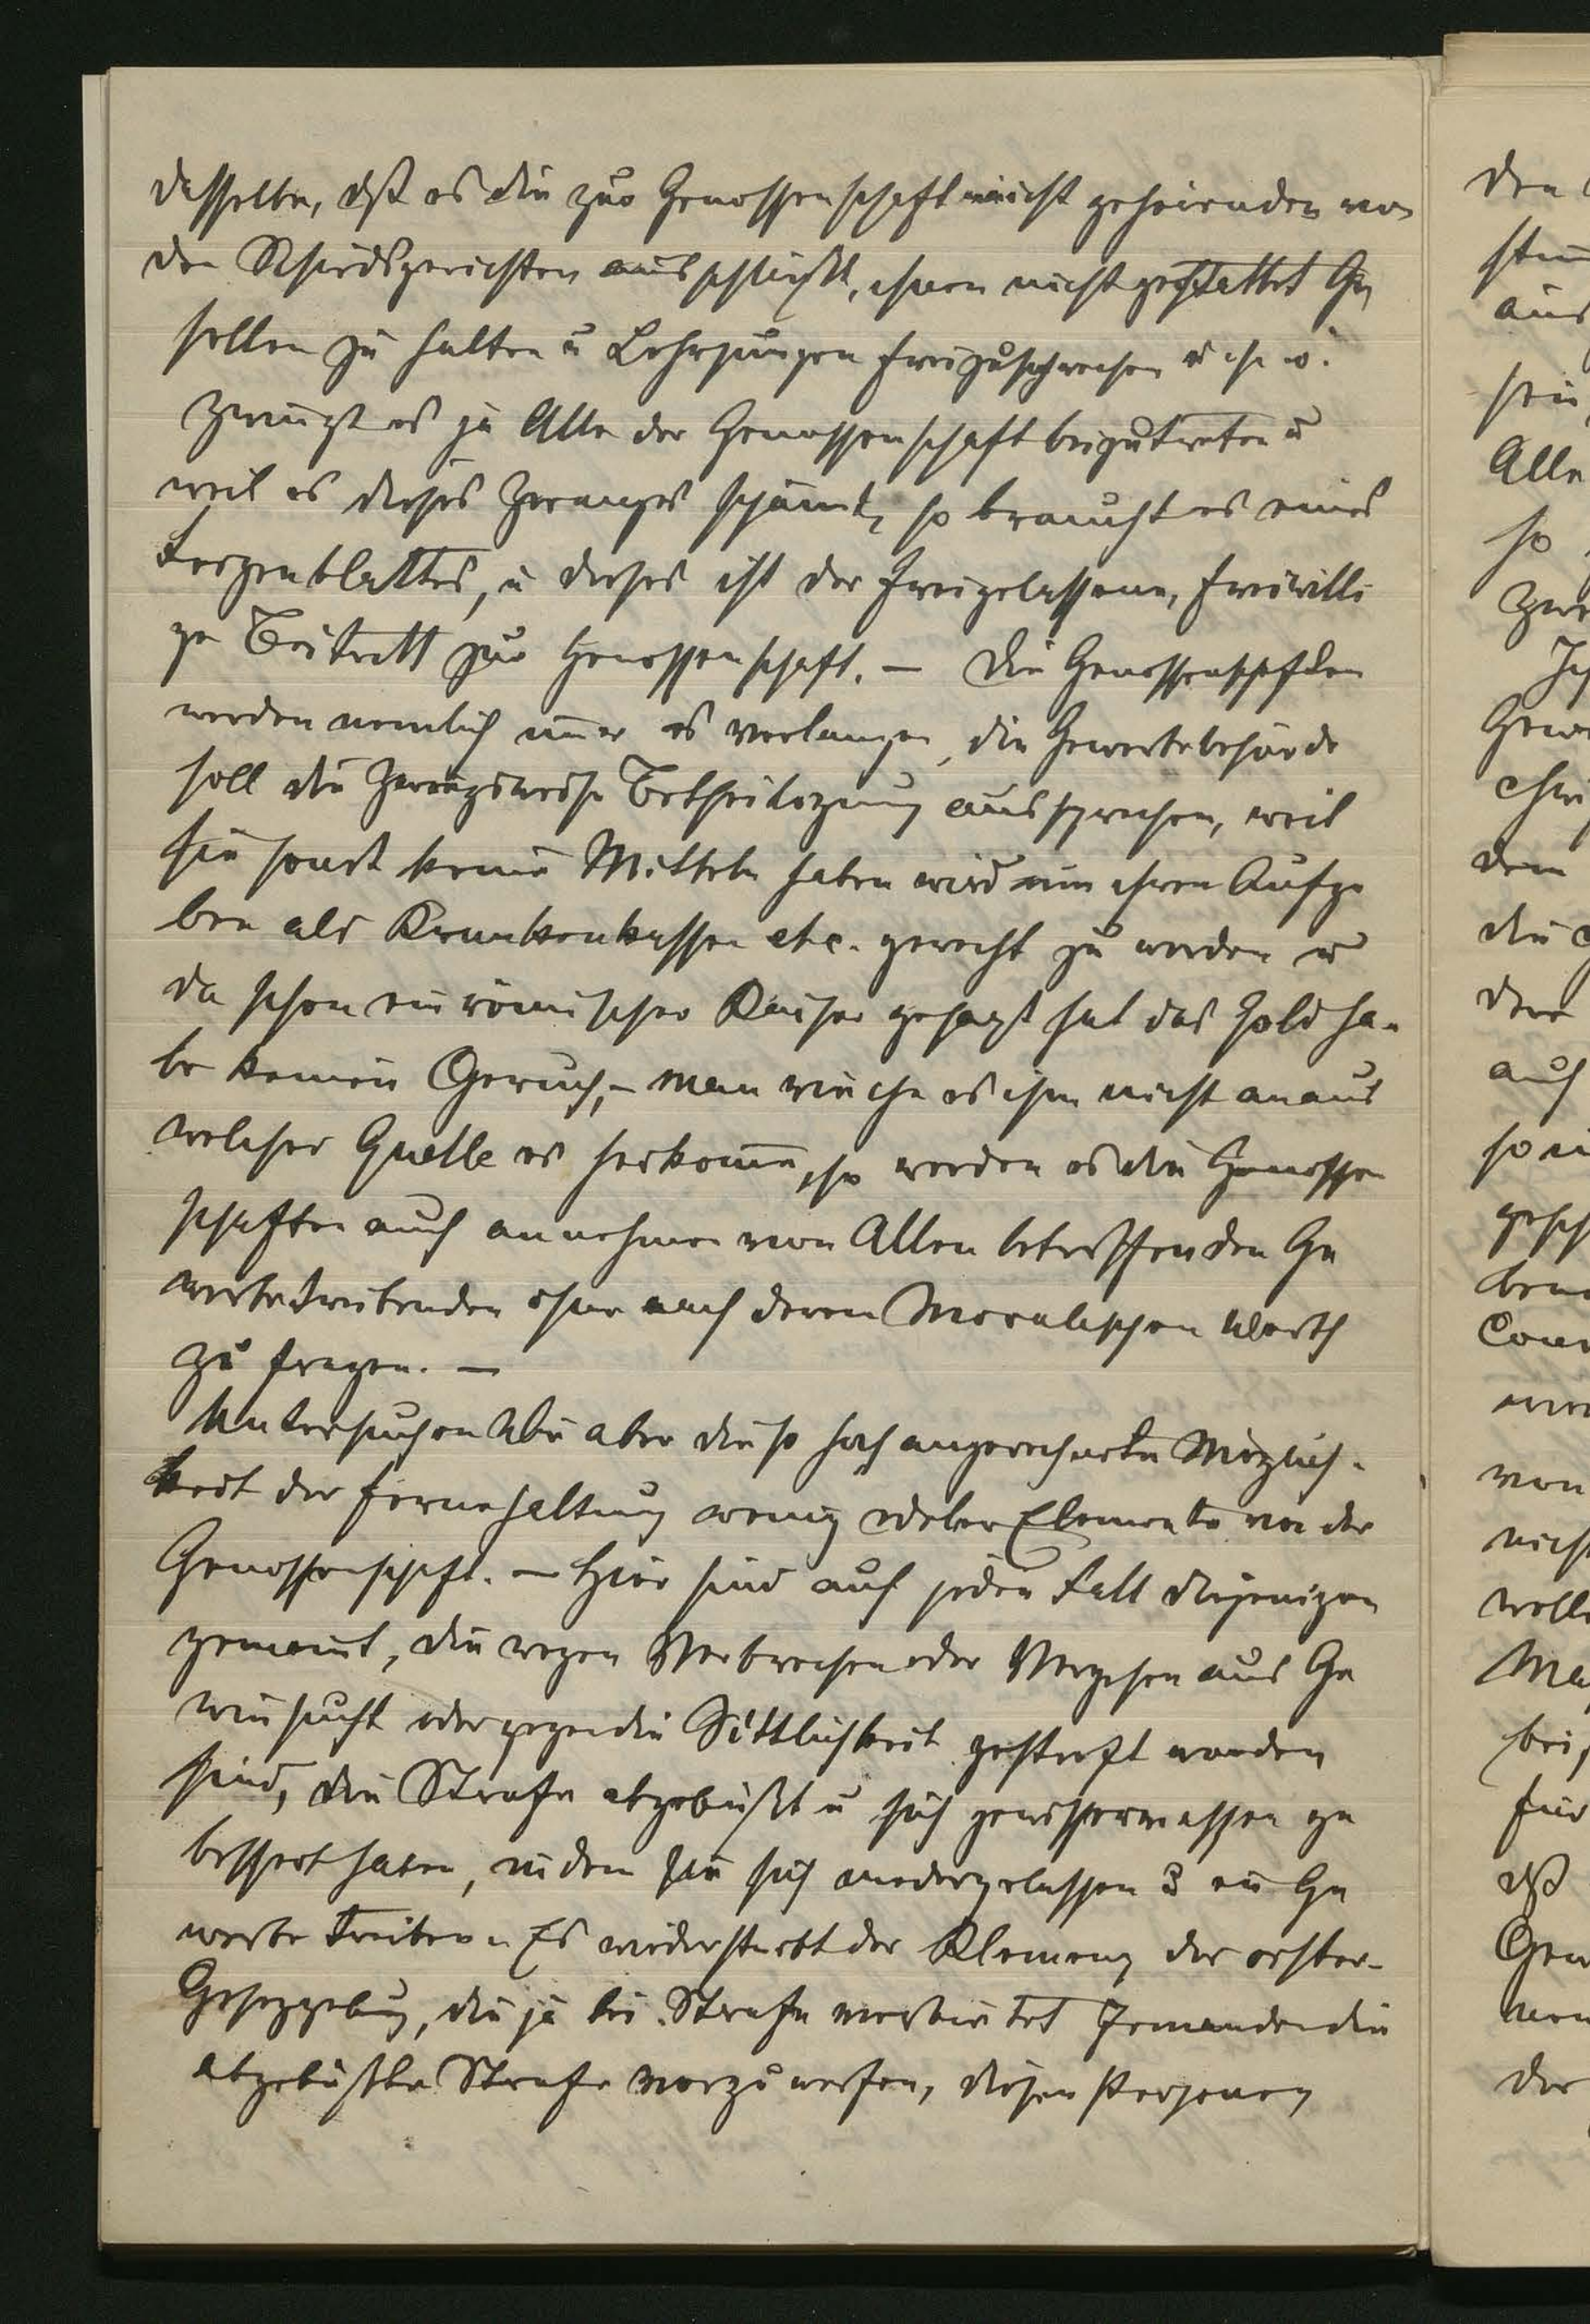 desselben, dß es die zur Genossenschaft nicht gehörenden von
den Schiedsgerichten ausschließt, ihnen nicht gestattet Ge
sellen zu halten u Lehrjungen freizusprechen u. s. w.
zwingt es ja Alle der Genossenschaft beizutreten u
weil es dieses Zwanges schämt, so braucht es eines
Feigenblattes, u dieses ist der freigelassene, freiwilli
ge Beitritt zur Genossenschaft. — Die Genossenschften
werden nemlich immer es verlangen, die Gewerbebehörde
soll die zwangsweise Betheiligung aussprechen, weil
sie sonst keine Mitteln haben wird um ihren Aufga
ben als Krankenkassen etc. gerecht zu werden u
da schon ein römischer Kaiser gesagt hat das Gold ha-
be keinen Geruch, – man rieche es ihm nicht an aus
welcher Quelle es herkomme, so werden es die Genossen
schaften auch annehmen von Allen betreffenden Ge
werbetreibenden ohne nach deren Moralischen Werth
zu fragen. —
Untersuchen Wir aber die so hoch angerechnete Möglich-
keit der Fernehaltung wenig edeler Elemente von der
Genossenschft. — Hier sind auf jeden Fall diejenigen
gemeint, die wegen Verbrechen oder Vergehen aus Ge
winsucht oder gegen die Sittlichkeit gestraft worden
sind, die Strafe abgebüßt u sich gewissermassen ge
bessert haben, indem sie sich niedergelassen u ein Ge
werbe treiben. Es widerstrebt der Klemenz der öster-
Gesezgebung, die ja bei Strafe verbietet Jemanden die
abgebüßte Strafe vorzuwerfen, diesen Personen
den
aus
Alle
so
dem
die
der
auf
von
nicht
für
dß
der